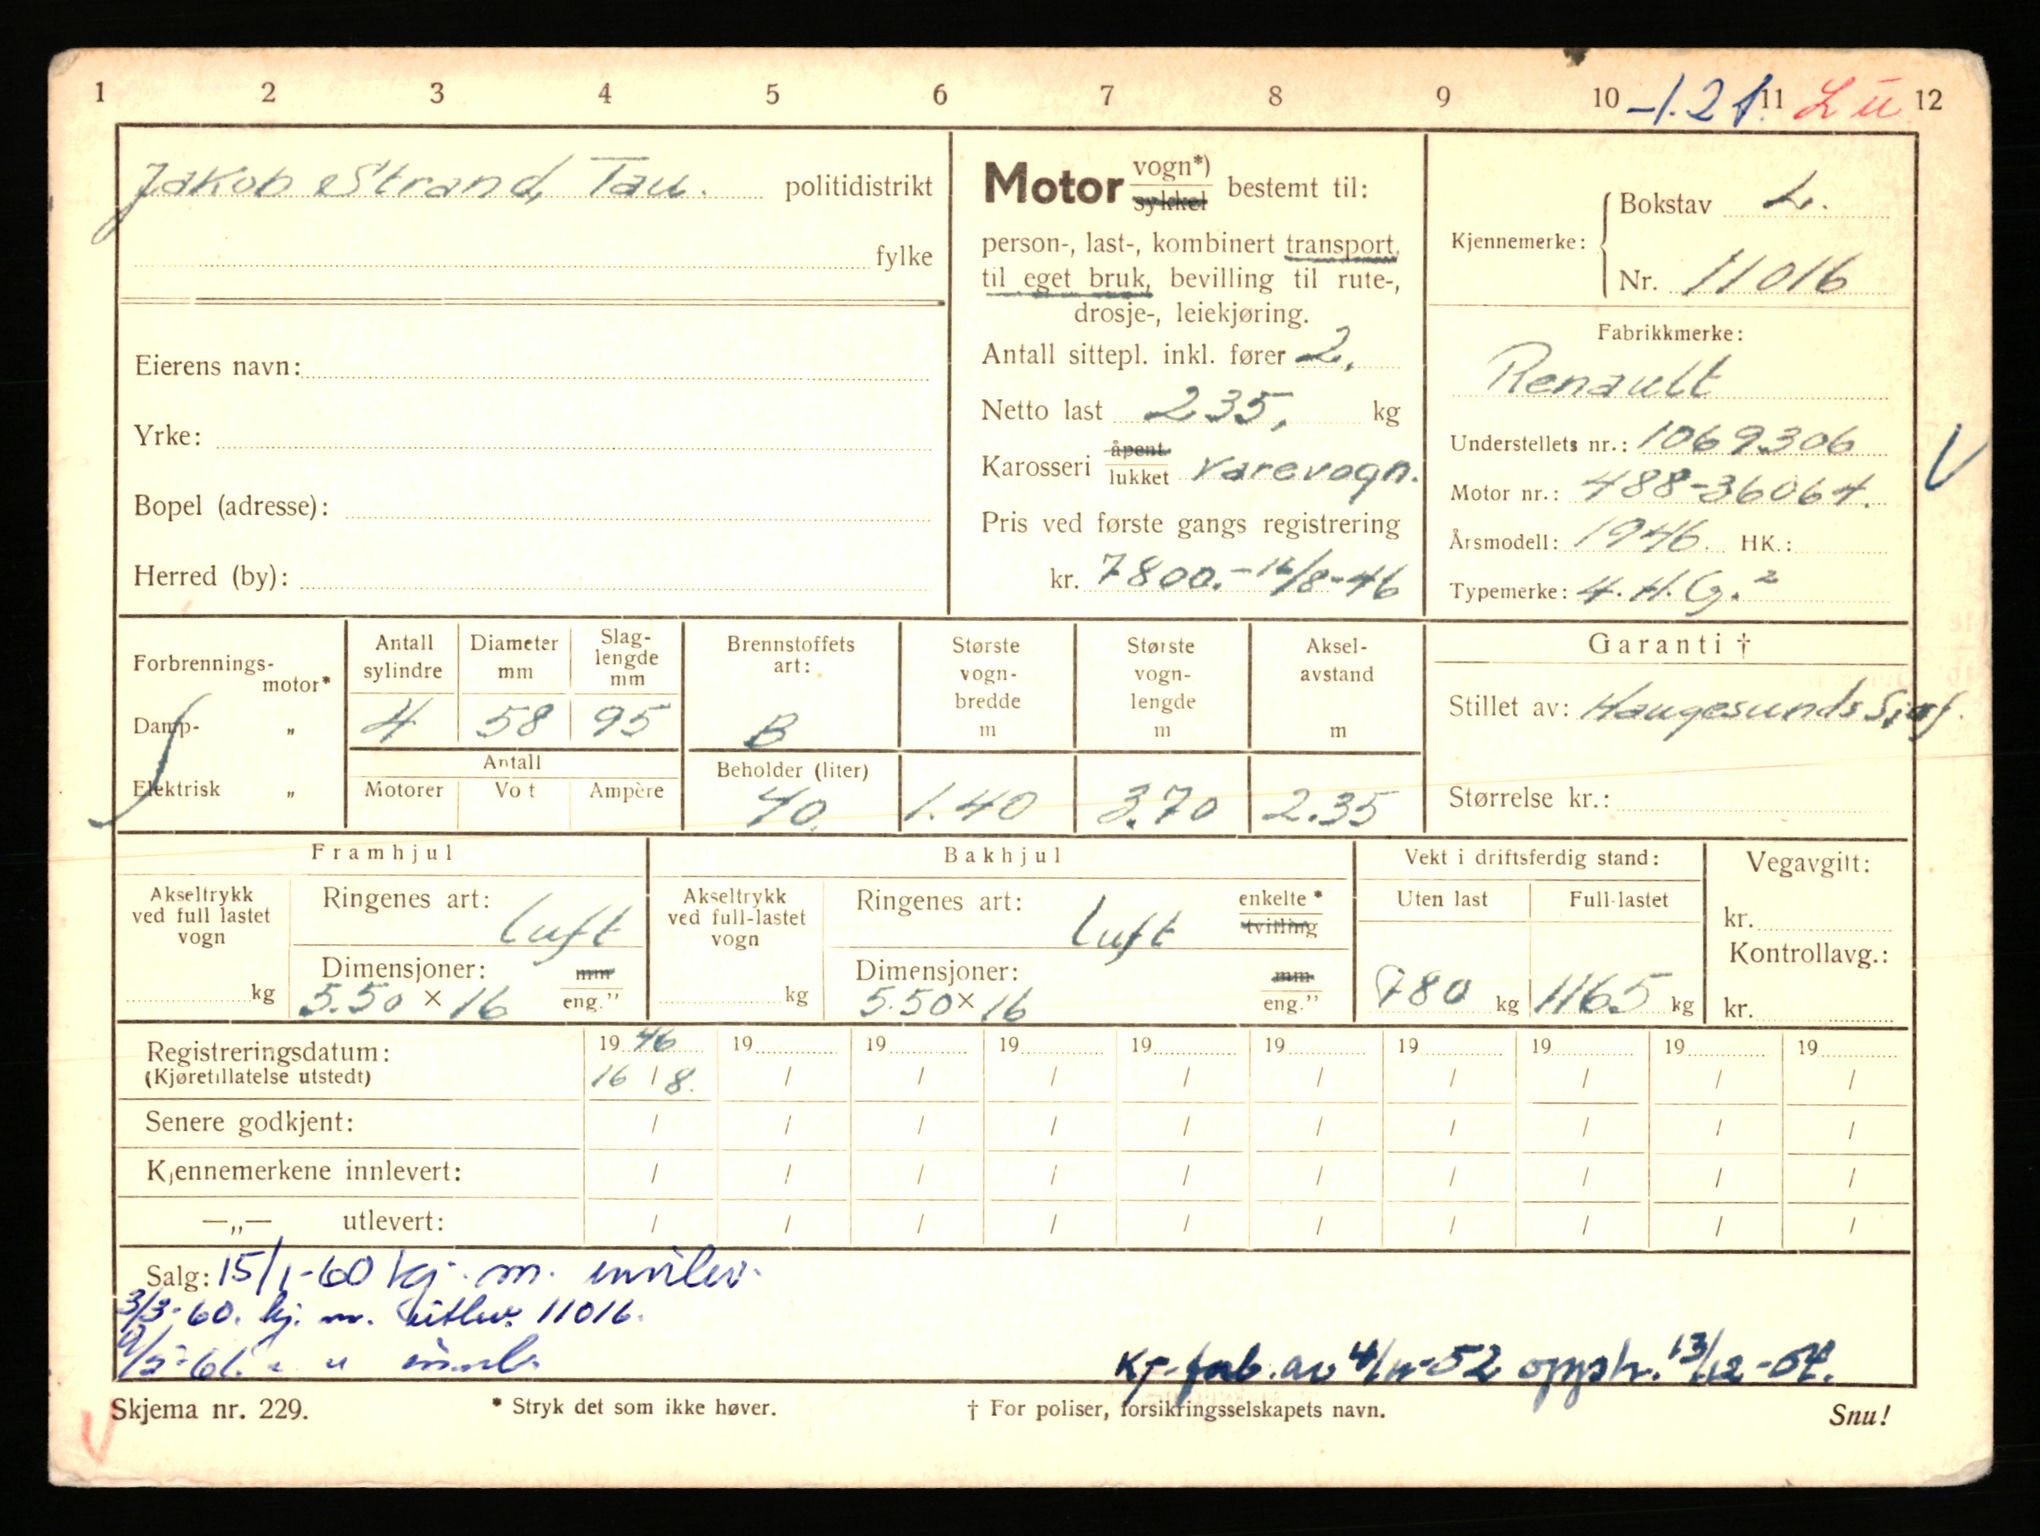 1 2 3 4 5 6 7 8 9 10 -1.21. 11 L ü 12
Jakob Strand, Tau. politidistrikt
fylke
Eierens navn:
Yrke:
Bopel (adresse):
Herred (by):
Motor vogn*) sykkel bestemt til:
person-, last-, kombinert transport,
til eget bruk, bevilling til rute-,
drosje-, leiekjøring.
Antall sittepl. inkl. fører 2.
Netto last 235, kg
Karosseri åpent lukket varevogn.
Pris ved første gangs registrering
kr. 7800.- 16/8-46
Kjennemerke: Bokstav L.
Nr. 11016
Fabrikkmerke:
Renault
Understellets nr.: 1069306
Motor nr.: 488-36064.
Årsmodell: 1946. HK.:
Typemerke: 4.H.G.2
V
Forbrennings-
motor*
Damp- „
Elektrisk „
Antall sylindre
4
Diameter mm
58
Slag-
lengde
mm
95
Antall
Motorer Vo t Ampère
Brennstoffets
art:
B
Beholder (liter)
40.
Største
vogn-
bredde
m
1.40
Største
vogn-
lengde
m
3.70
Aksel-
avstand
m
2.35
Garanti †
Stillet av: Haugesunds Sjøf.
Størrelse kr.:
Framhjul
Akseltrykk
ved full lastet
vogn
kg
Ringenes art: luft
Dimensjoner: mm
5.50 × 16 eng."
Bakhjul
Akseltrykk
ved full-lastet
vogn
kg
Ringenes art: luft enkelte * tvilling
Dimensjoner: mm
5.50 × 16 eng."
Vekt i driftsferdig stand:
Uten last Full-lastet
780 kg 1165 kg
Vegavgift:
kr.
Kontrollavg.:
kr.
Registreringsdatum: 19 46 19 19 19 19 19 19 19 19 19
(Kjøretillatelse utstedt) 16 / 8. / / / / / / / / /
Senere godkjent: / / / / / / / / / /
Kjennemerkene innlevert: / / / / / / / / / /
—„— utlevert: / / / / / / / / / /
Salg: 15/1-60 kj. m. innlev.
3/3-60. kj. m. utlev. 11016.
/5-61. " " innl.
Kj. forb. av 4/11-52 opph. 13/12-54.
Skjema nr. 229. * Stryk det som ikke høver. † For poliser, forsikringsselskapets navn. Snu!
V